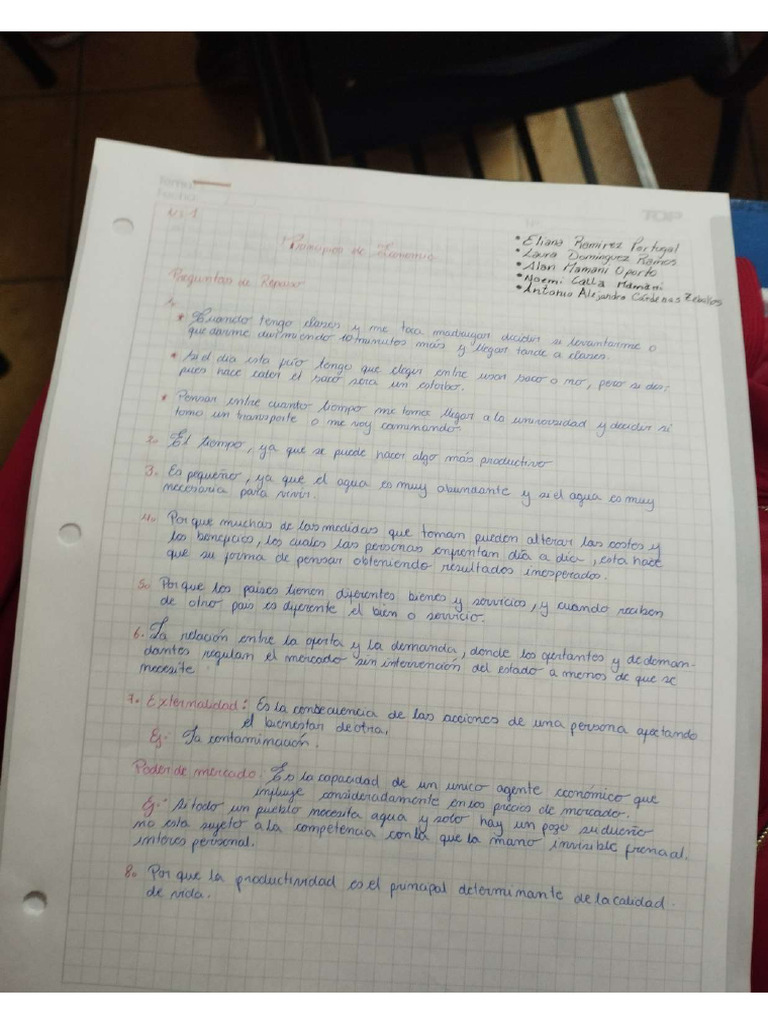 Tema:
Fecha:
TOP
Nº1
Principios de Economía
• Eliana Ramirez Portugal
• Laura Dominguez Ramos
• Alan Mamani Oporto
• Noemi Calla Mamani
• Antonio Alejandro Cárdenas Zeballos
Preguntas de Repaso
1.
* Cuando tengo clases y me toca madrugar decidir si levantarme o
quedarme durmiendo 10 minutos más y llegar tarde a clases.
* Si el dia esta frío tengo que elegir entre usar saco o no, pero si des;
pues hace calor el saco sera un estorbo.
* Pensar entre cuanto tiempo me toma llegar a la universidad y decidir si
tomo un transporte o me voy caminando.
2. El tiempo, ya que se puede hacer algo más productivo
3. Es pequeño, ya que el agua es muy abundante y si el agua es muy
necesaria para vivir.
4. Porque muchas de las medidas que toman pueden alterar los costes y
los beneficios, los cuales las personas enfrentan día a día, esta hace
que su forma de pensar obteniendo resultados inesperados.
5. Porque los países tienen diferentes bienes y servicios, y cuando reciben
de otro pais es diferente el bien o servicio.
6. La relación entre la oferta y la demanda, donde los ofertantes y de deman-
dantes regulan el mercado sin intervención del estado a menos de que se
necesite.
7. Externalidad: Es la consecuencia de las acciones de una persona afectando
el bienestar de otra.
Ej. La contaminación.
Poder de mercado: Es la capacidad de un unico agente económico que
influye consideradamente en los precios de mercado.
Ej: Si todo un pueblo necesita agua y solo hay un pozo su dueño
no esta sujeto a la competencia con la que la mano invisible frena al
interes personal.
8. Por que la productividad es el principal determinante de la calidad
de vida.